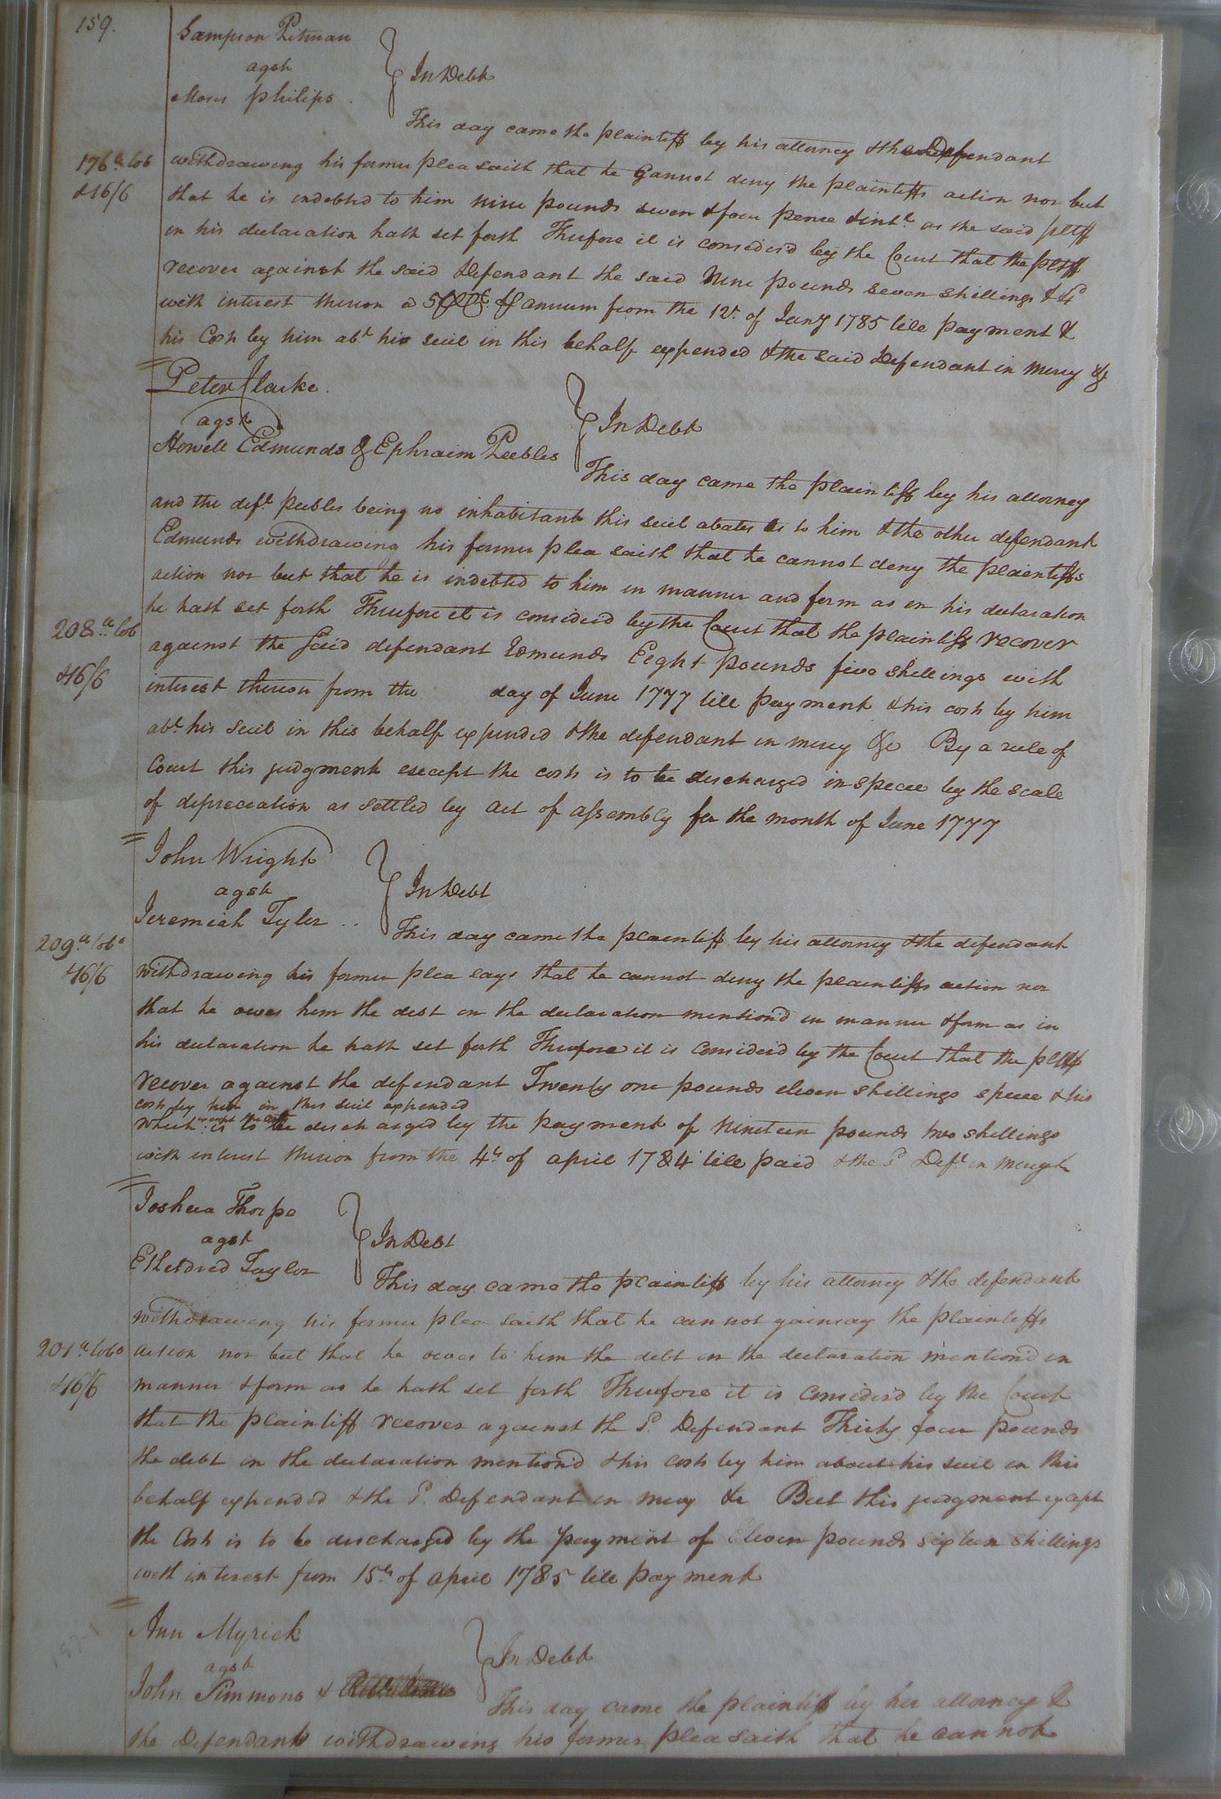 159.
Sampson Pitman
agst
Moses Philips.
In Debt
This day came the plaintiff by his attorney & the Defendant
176 lb tob
& 16/6
withdrawing his former plea saith that he Cannot deny the plaintiffs action nor but
that he is indebted to him nine pounds seven & four pence & intt. as the said pltff
in his declaration hath set forth Therefore it is considerd by the Court that the pltff
recover against the said Defendant the said Nine pounds seven shillings & 4d
with interest thereon a 5 annum from the 12th of Jany 1785 till payment &
his Costs by him abt. his suit in this behalf expended & the said Defendant in mercy &c
Peter Clarke.
agst
Howell Edmunds & Ephraim Peebles
In Debt
This day came the plaintiff by his attorney
and the deft. peebles being no inhabitant this suit abates as to him & the other defendant
Edmunds withdrawing his former plea saith that he cannot deny the plaintiffs
action nor but that he is indebted to him in manner and form as in his declaration
208 lb tob
& 16/6
he hath set forth Therefore it is considerd by the Court that the plaintiff recover
against the said defendant Edmunds Eight pounds five shillings with
interest thereon from the day of June 1777 till payment & his costs by him
abt. his suit in this behalf expended & the defendant in mercy &c By a rule of
Court this judgment except the costs is to be discharged in specie by the scale
of depreciation as settled by act of assembly for the month of June 1777
John Wright
agst
Jeremiah Tyler ..
In Debt
This day came the plaintiff by his attorney & the defendant
209 lb tobo
& 16/6
withdrawing his former plea says that he cannot deny the plaintiffs action nor
that he owes him the debt in the declaration mention'd in manner & form as in
his declaration he hath set forth Therefore it is Considerd by the Court that the pltff
recover against the defendant Twenty one pounds eleven shillings specie & his
costs by him in this suit expended
which except the costs is to be discharged by the payment of Nineteen pounds two shillings
with interest thereon from the 4th of april 1784 till paid & the sd. Deft. in mercy &c
Joshua Thorpe
agst
Etheldred Taylor
In Debt
This day came the plaintiff by his attorney & the defendant
withdrawing his former plea saith that he can not gainsay the plaintiffs
201 lb tobo
& 16/6
action nor but that he owes to him the debt in the declaration mention'd in
manner & form as he hath set forth Therefore it is Considerd by the Court
that the plaintiff recover against the sd. Defendant Thirty four pounds
the debt in the declaration mention'd & his costs by him about his suit in this
behalf expended & the sd. Defendant in mercy &c But this judgment except
the Costs is to be discharged by the payment of Eleven pounds sixteen shillings
with interest from 15th of april 1785 till payment
Ann Myrick
agst
John Simmons &
In Debt
This day came the plaintiff by her attorney &
the Defendant withdrawing his former plea saith that he cannot